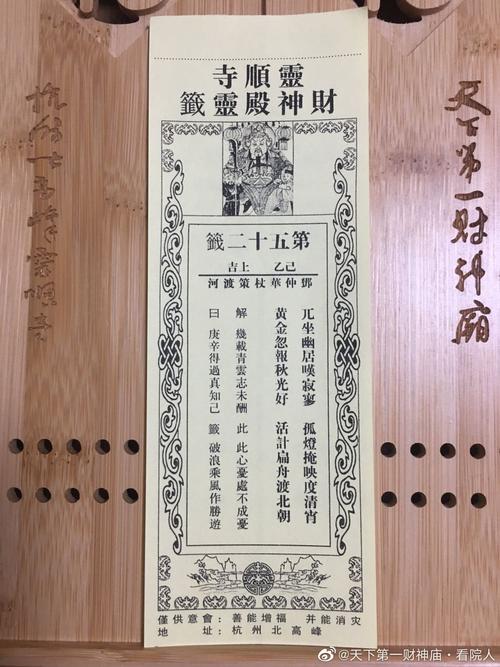 靈順寺
財神殿靈籤
第五十二籤
己乙 上吉
鄧仲華杖策渡河
兀坐幽居嘆寂寥 孤燈掩映度清宵
黃金忽報秋光好 活計扁舟渡北朝
解 幾載青雲志未酬 此 此心憂處不成憂
曰 庚辛得過真知己 籤 破浪乘風作勝遊
僅供意會：善能增福 并能消灾
地址：杭州北高峰
天下第一财神廟
杭州北高峰靈順寺
@天下第一财神庙·看院人